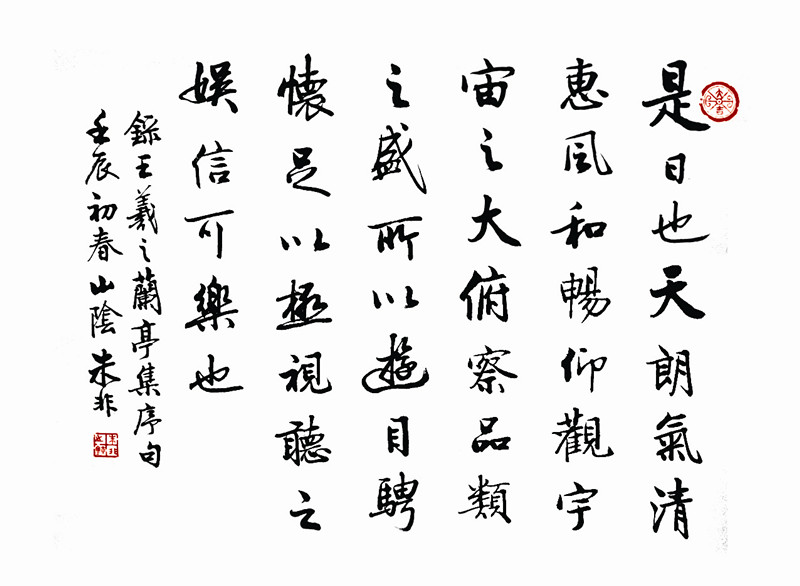 是日也天朗氣清
惠風和暢仰觀宇
宙之大俯察品類
之盛所以遊目騁
懷足以極視聽之
娛信可樂也
錄王羲之蘭亭集序句
壬辰初春山陰朱非